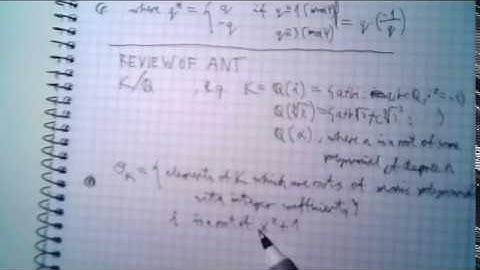 where q* = { q if q≡1 (mod 4)
-q q≡3 (mod 4) = q·(-1/q)
REVIEW OF ANT
K/Q , e.g. K = Q(i) = {a+bi
Q(∛2) = {a+b∛2+c
Q(α), where α is a root of some
polynomial of degree n
O_K = { elements of K which are roots of monic polynomials
with integer coefficients}
i is a root of x²+1